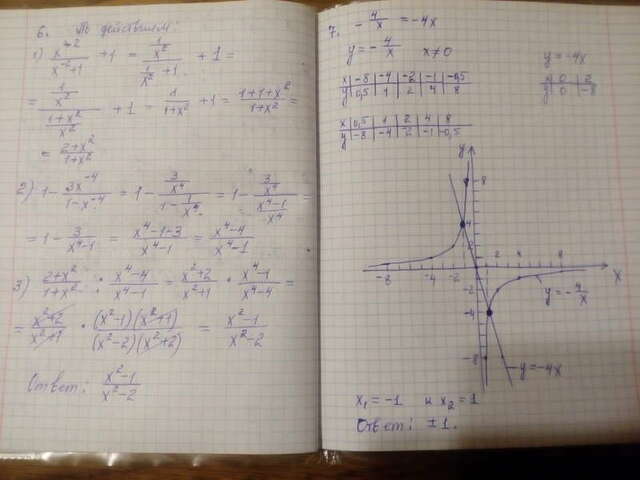 6. По действиям:
1) x⁻²/(x⁻²+1) + 1 = (1/x²)/(1/x² + 1) + 1 =
= (1/x²)/((1+x²)/x²) + 1 = 1/(1+x²) + 1 = (1+1+x²)/(1+x²) =
= (2+x²)/(1+x²)
2) 1 - 3x⁻⁴/(1-x⁻⁴) = 1 - (3/x⁴)/(1 - 1/x⁴) = 1 - (3/x⁴)/((x⁴-1)/x⁴) =
= 1 - 3/(x⁴-1) = (x⁴-1-3)/(x⁴-1) = (x⁴-4)/(x⁴-1)
3) (2+x²)/(1+x²) : (x⁴-4)/(x⁴-1) = (x²+2)/(x²+1) · (x⁴-1)/(x⁴-4) =
= (x²+2)/(x²+1) · (x²-1)(x²+1)/((x²-2)(x²+2)) = (x²-1)/(x²-2)
Ответ: (x²-1)/(x²-2)
7. -4/x = -4x
y = -4/x x≠0 y = -4x
x -8 -4 -2 -1 -0,5
y 0,5 1 2 4 8
x 0 2
y 0 -8
x 0,5 1 2 4 8
y -8 -4 -2 -1 -0,5
y
8
4
-8 -4 -2 2 4 8 x
-2
-4
y = -4/x
-8
y = -4x
x₁ = -1 и x₂ = 1
Ответ: ±1.